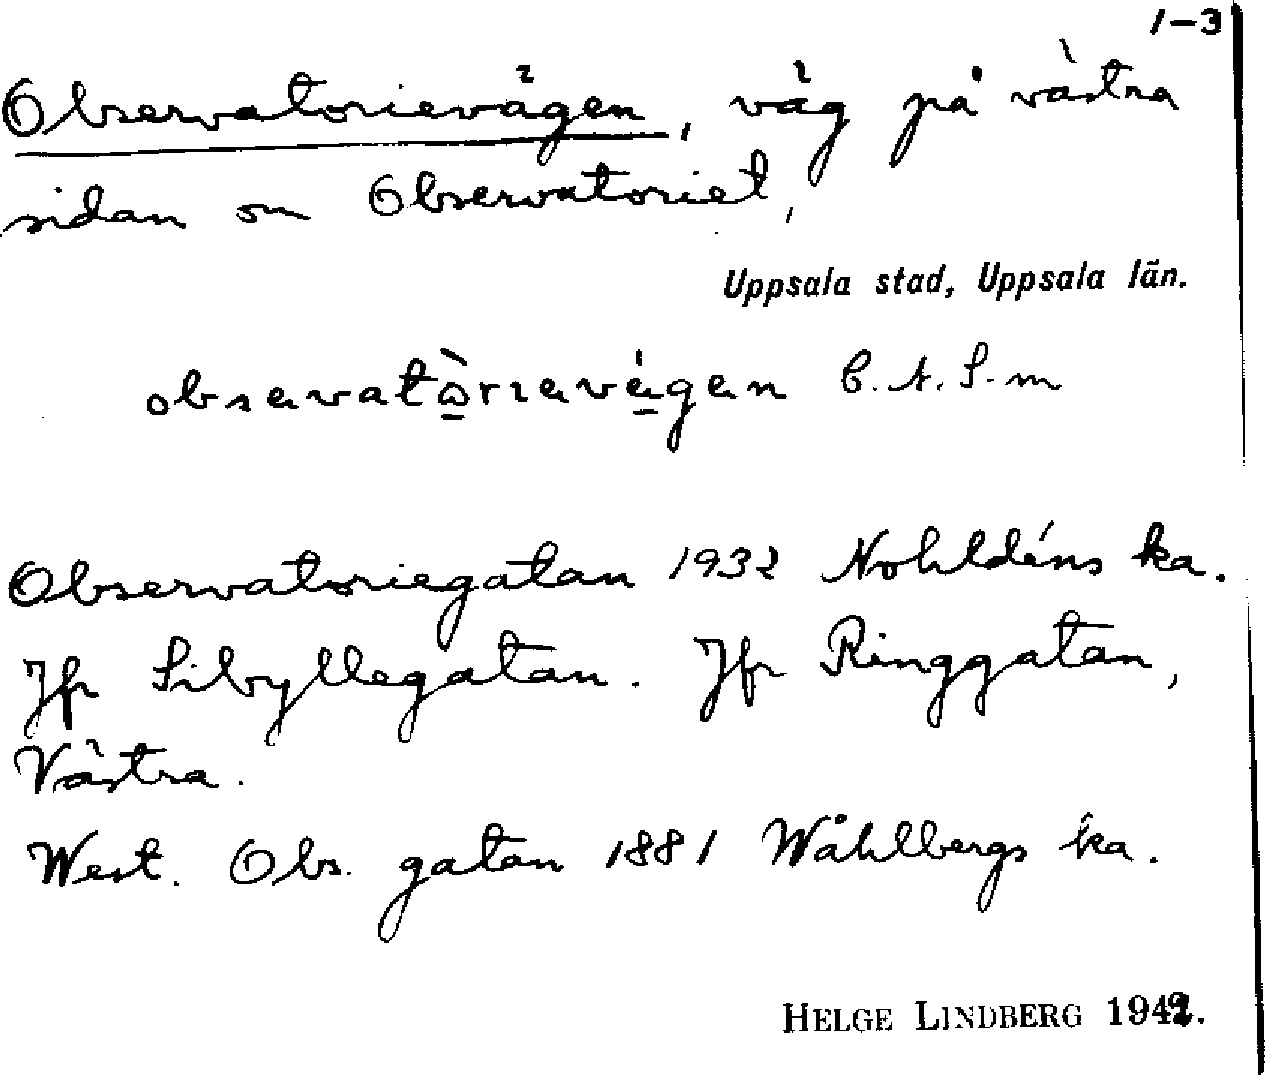 1-3
Observatorievägen, väg på västra
sidan om Observatoriet,
Uppsala stad, Uppsala län.
observatòrıevágen
Observatoriegatan 1932 Nohldéns ka.
Jfr Sibyllegatan. Jfr Ringgatan,
Västra.
West. Obs. gatan 1881 Wåhlbergs ka.
HELGE LINDBERG 1942.